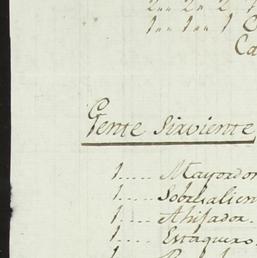 2... 2.. 2
1... 1... 1 C
Ca
Gente Sirviente
1.... Mayordom
1.... Sobresalien
1.... Ahijador.
1.... Estaquero.
1....